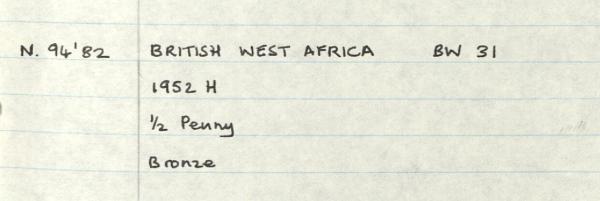 N. 94'82 BRITISH WEST AFRICA BW 31
1952 H
½ Penny
Bronze